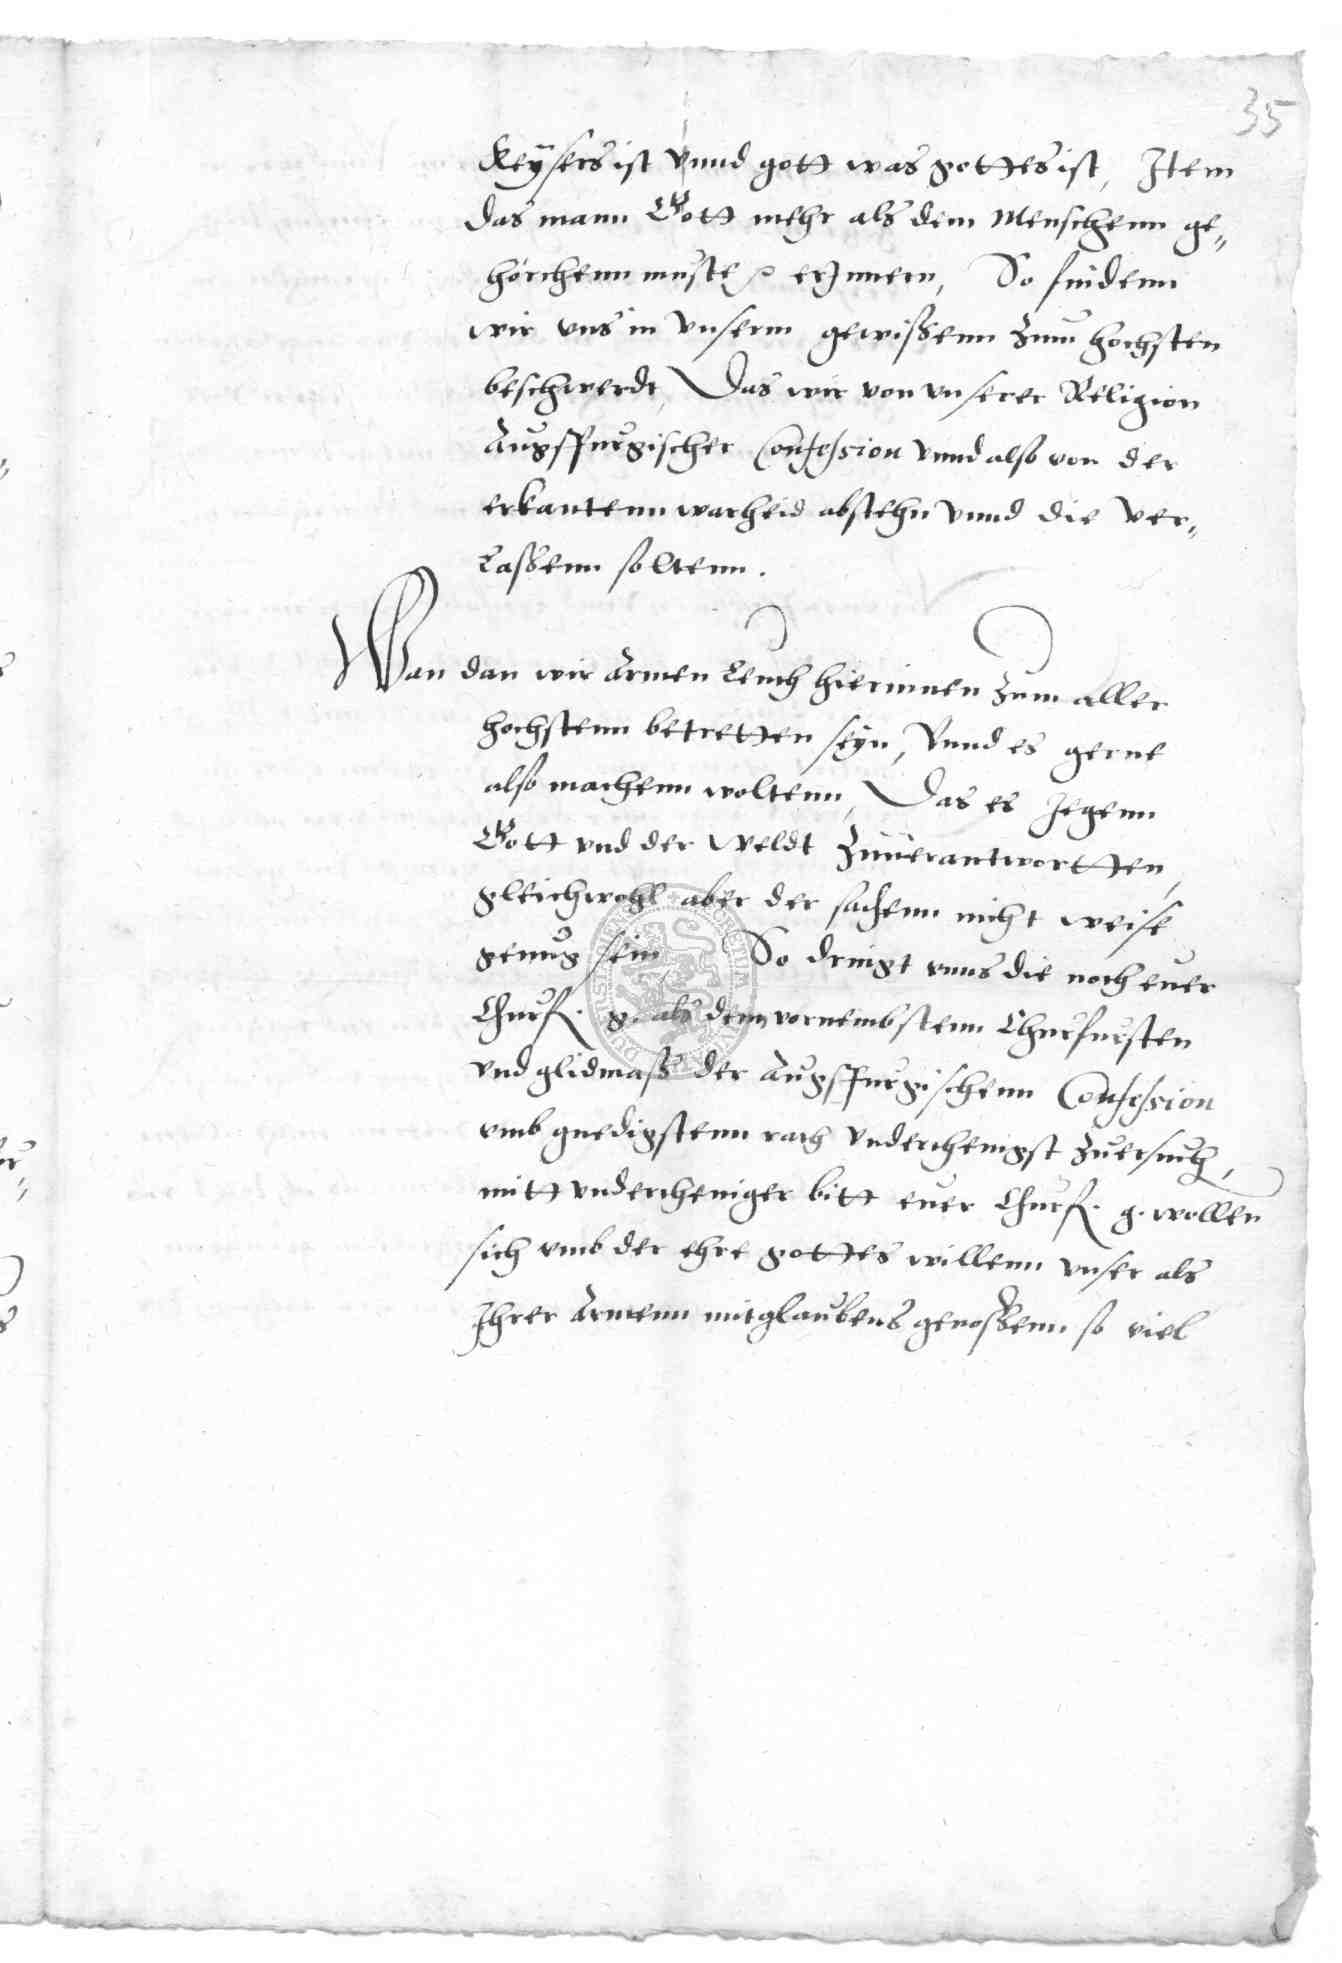 35
Keÿsers ist vnnd gott was gottes ist, Item
das mann Gott mehr als dem Menschenn ge„
hórchenn muste erJnnern, So findenn
wir vns in vnserm gewißenn Zum hochsten
beschwerdt, Das wir von vnserer Religion
Augspurgischer Confession vnnd also von der
erkantenn warheid abstehn vnnd die ver„
laßenn soltenn.
Wan dan wir Armen Leuth hierinnen Zum aller
hochstenn betretten seÿn, Vnnd es gerne
also machenn woltenn, Das es Jegenn
Gott vnd der Weldt Zuuerantwortten,
gleichwohl aber der sachenn nicht weise
genug sein So dringt vnns die noch euer
Churf. g. als dem vornembstenn Churfursten
vnd glidmaß der Augspurgischenn Confession
vmb gnedigstenn rath vnderthenigst Zuersuchen,
mitt vndertheniger bitt euer Churf. g. wollen
sich vmb der ehre gottes willenn vnser als
Ihrer Armenn mitglaubens genoßenn so viel